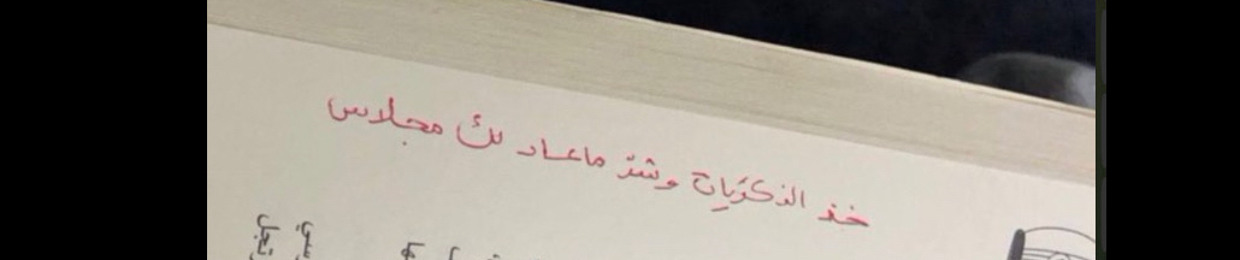 خذ الذكريات وشدّ ماعاد لك مجلاس